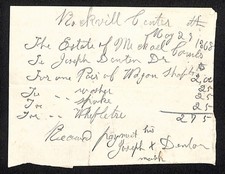 Rockvill Center
May 23 1868
The Estate of Michael Combs
To Joseph Denton Dr
For one Pair of Wagon Shafts 2,00
For washer 25
For spoke 25
For Whipletree 25
2 75
Received payment his
Joseph X Denton
mark